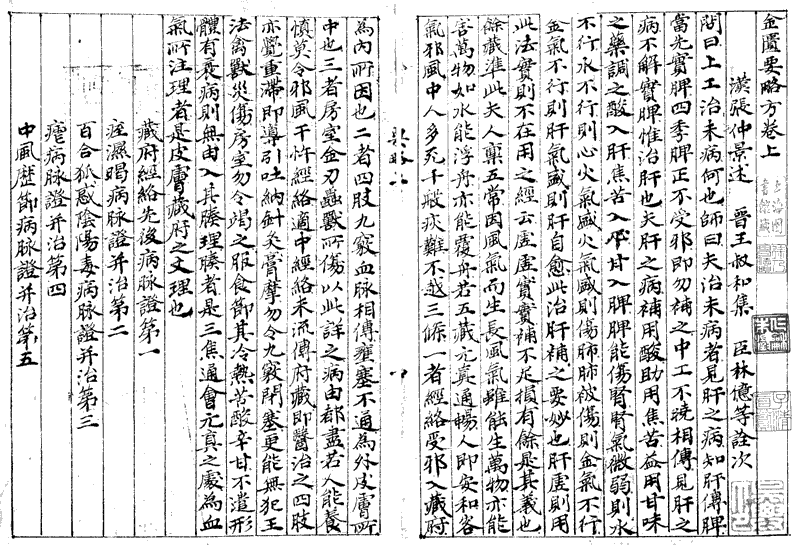 金匱要略方卷上
漢張仲景述 晉王叔和集 臣林億等詮次
問曰上工治未病何也師曰夫治未病者見肝之病知肝傳脾
當先實脾四季脾王不受邪即勿補之中工不曉相傳見肝之
病不解實脾惟治肝也夫肝之病補用酸助用焦苦益用甘味
之藥調之酸入肝焦苦入心甘入脾脾能傷腎腎氣微弱則水
不行水不行則心火氣盛火氣盛則傷肺肺被傷則金氣不行
金氣不行則肝氣盛則肝自愈此治肝補之要妙也肝虛則用
此法實則不在用之經云虛虛實實補不足損有餘是其義也
餘藏準此夫人稟五常因風氣而生長風氣雖能生萬物亦能
害萬物如水能浮舟亦能覆舟若五藏元真通暢人即安和客
氣邪風中人多死千般疢難不越三條一者經絡受邪入藏府
為內所因也二者四肢九竅血脉相傳壅塞不通為外皮膚所
中也三者房室金刃蟲獸所傷以此詳之病由都盡若人能養
慎莫令邪風干忤經絡適中經絡未流傳府藏即醫治之四肢
亦覺重滯即導引吐納針灸膏摩勿令九竅閉塞更能無犯王
法禽獸災傷房室勿令竭之服食節其冷熱苦酸辛甘不遺形
體有衰病則無由入其腠理腠者是三焦通會元真之處為血
氣所注理者是皮膚藏府之文理也
藏府經絡先後病脉證第一
痓濕暍病脉證并治第二
百合狐惑陰陽毒病脉證并治第三
瘧病脉證并治第四
中風歷節病脉證并治第五